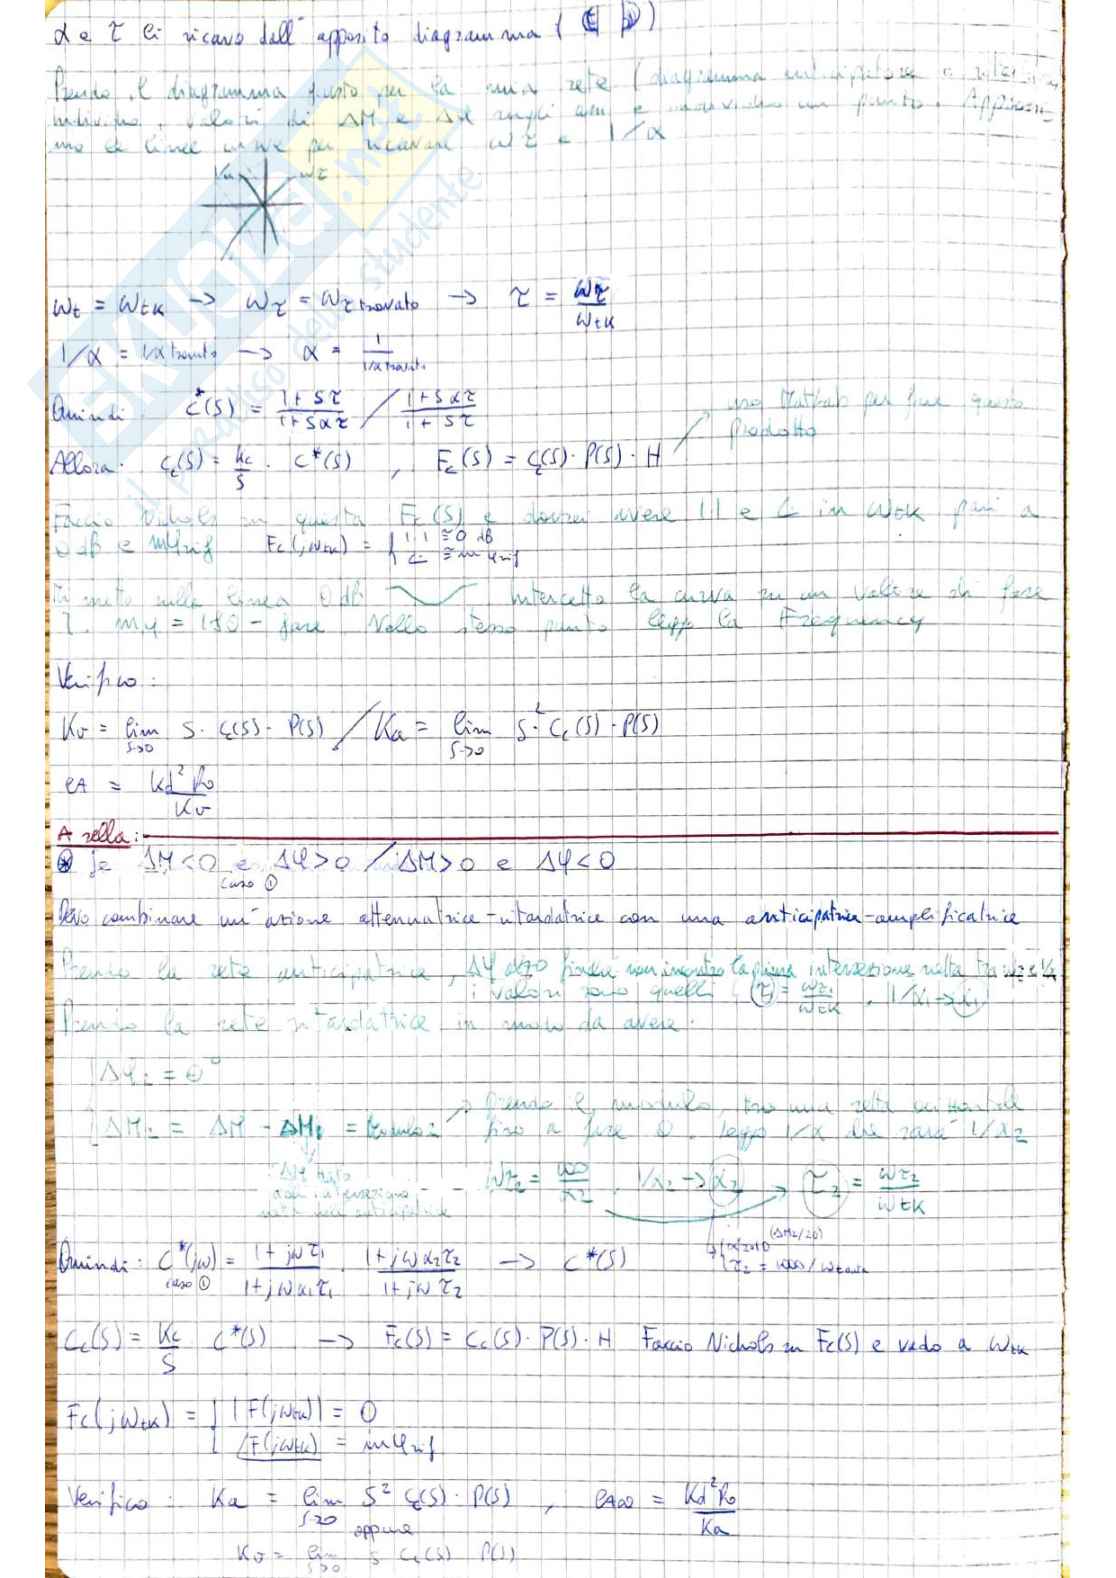 α e τ li ricavo dall' apposito diagramma (
Prendo il diagramma giusto per la mia rete (diagramma anticipatore o
individuo i valori di ΔM e Δφ sugli assi e individuo un punto.
le linee curve per ricavare ωτ e 1/α
ωτ
ωt = ωtk -> ωτ = ωτ trovato -> τ = ωτ/ωtk
1/α = 1/α trovato -> α = 1/(1/α trovato)
Quindi C*(s) = (1+sτ)/(1+sατ) / (1+sατ)/(1+sτ)
uso Matlab per fare questo prodotto
Allora: Cc(s) = kc/s · C*(s) , Fc(s) = Cc(s)· P(s) · H
Faccio Nichols su questa Fc(s) e dovrei avere | | e ∠ in ωtk pari a
0 dB e mφrif Fc(jωtk) = { |·| ≅ 0 dB
∠ ≅ mφrif
Mi metto sulla linea 0 dB intercetto la curva su un valore di fase
mφ = 180 - fase. Nello stesso punto leggo la Frequency
Verifico:
Kv = lim s→0 S · Cc(s) · P(s) / Ka = lim s→0 S² · Cc(s) · P(s)
eA = Kd² R0 / Kv
A sella:
Se ΔM<0 e Δφ>0 / ΔM>0 e Δφ<0
caso ①
Devo combinare un'azione attenuatrice-ritardatrice con una anticipatrice-amplificatrice
Prendo la rete anticipatrice, Δφ finché non incontro la prima intersezione netta tra ωτ e 1/α
i valori sono quelli (τ1) = ωτ1/ωtk , 1/α1 -> α1
Prendo la rete ritardatrice in modo da avere:
Δφ2 = 0°
ΔM2 = ΔM - ΔM1 = modulo 2
Prendo il modulo, su una rete
fino a fase 0. Leggo 1/α che sarà 1/α2
ωτ2 = ∞/α2 , 1/α2 -> α2 -> τ2 = ωτ2/ωtk
(ΔM2/20)
Quindi: C*(jω) = (1+jωτ1)/(1+jωα1τ1) · (1+jωα2τ2)/(1+jωτ2) -> C*(s)
caso ①
Cc(s) = Kc/S C*(s) -> Fc(s) = Cc(s) · P(s) · H Faccio Nichols su Fc(s) e vado a ωtk
Fc(jωtk) = { |F(jωtk)| = 0
∠F(jωtk) = mφrif
Verifico : Ka = lim s→0 S² Cc(s) · P(s) , eA∞ = Kd² R0 / Ka
oppure
Kv = lim s→0 s Cc(s) P(s)
SKUOLA.net
il paradiso dello studente